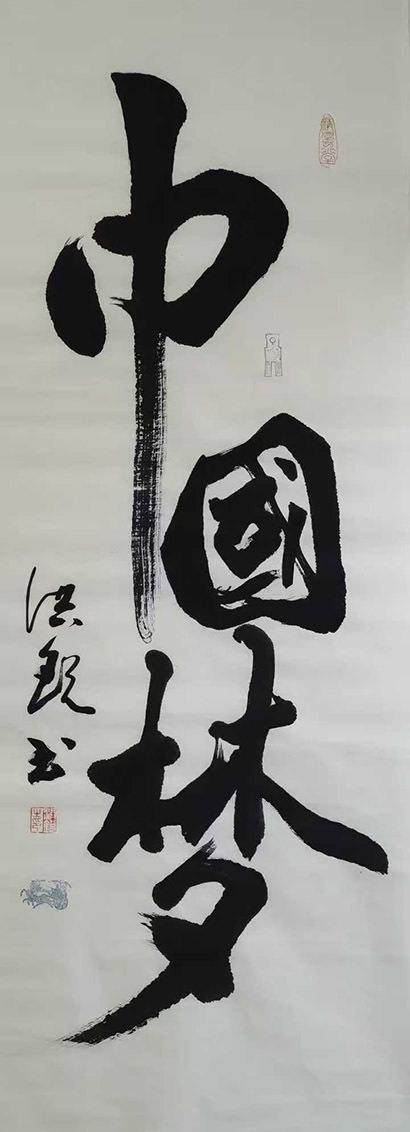 中國梦
洪銳书